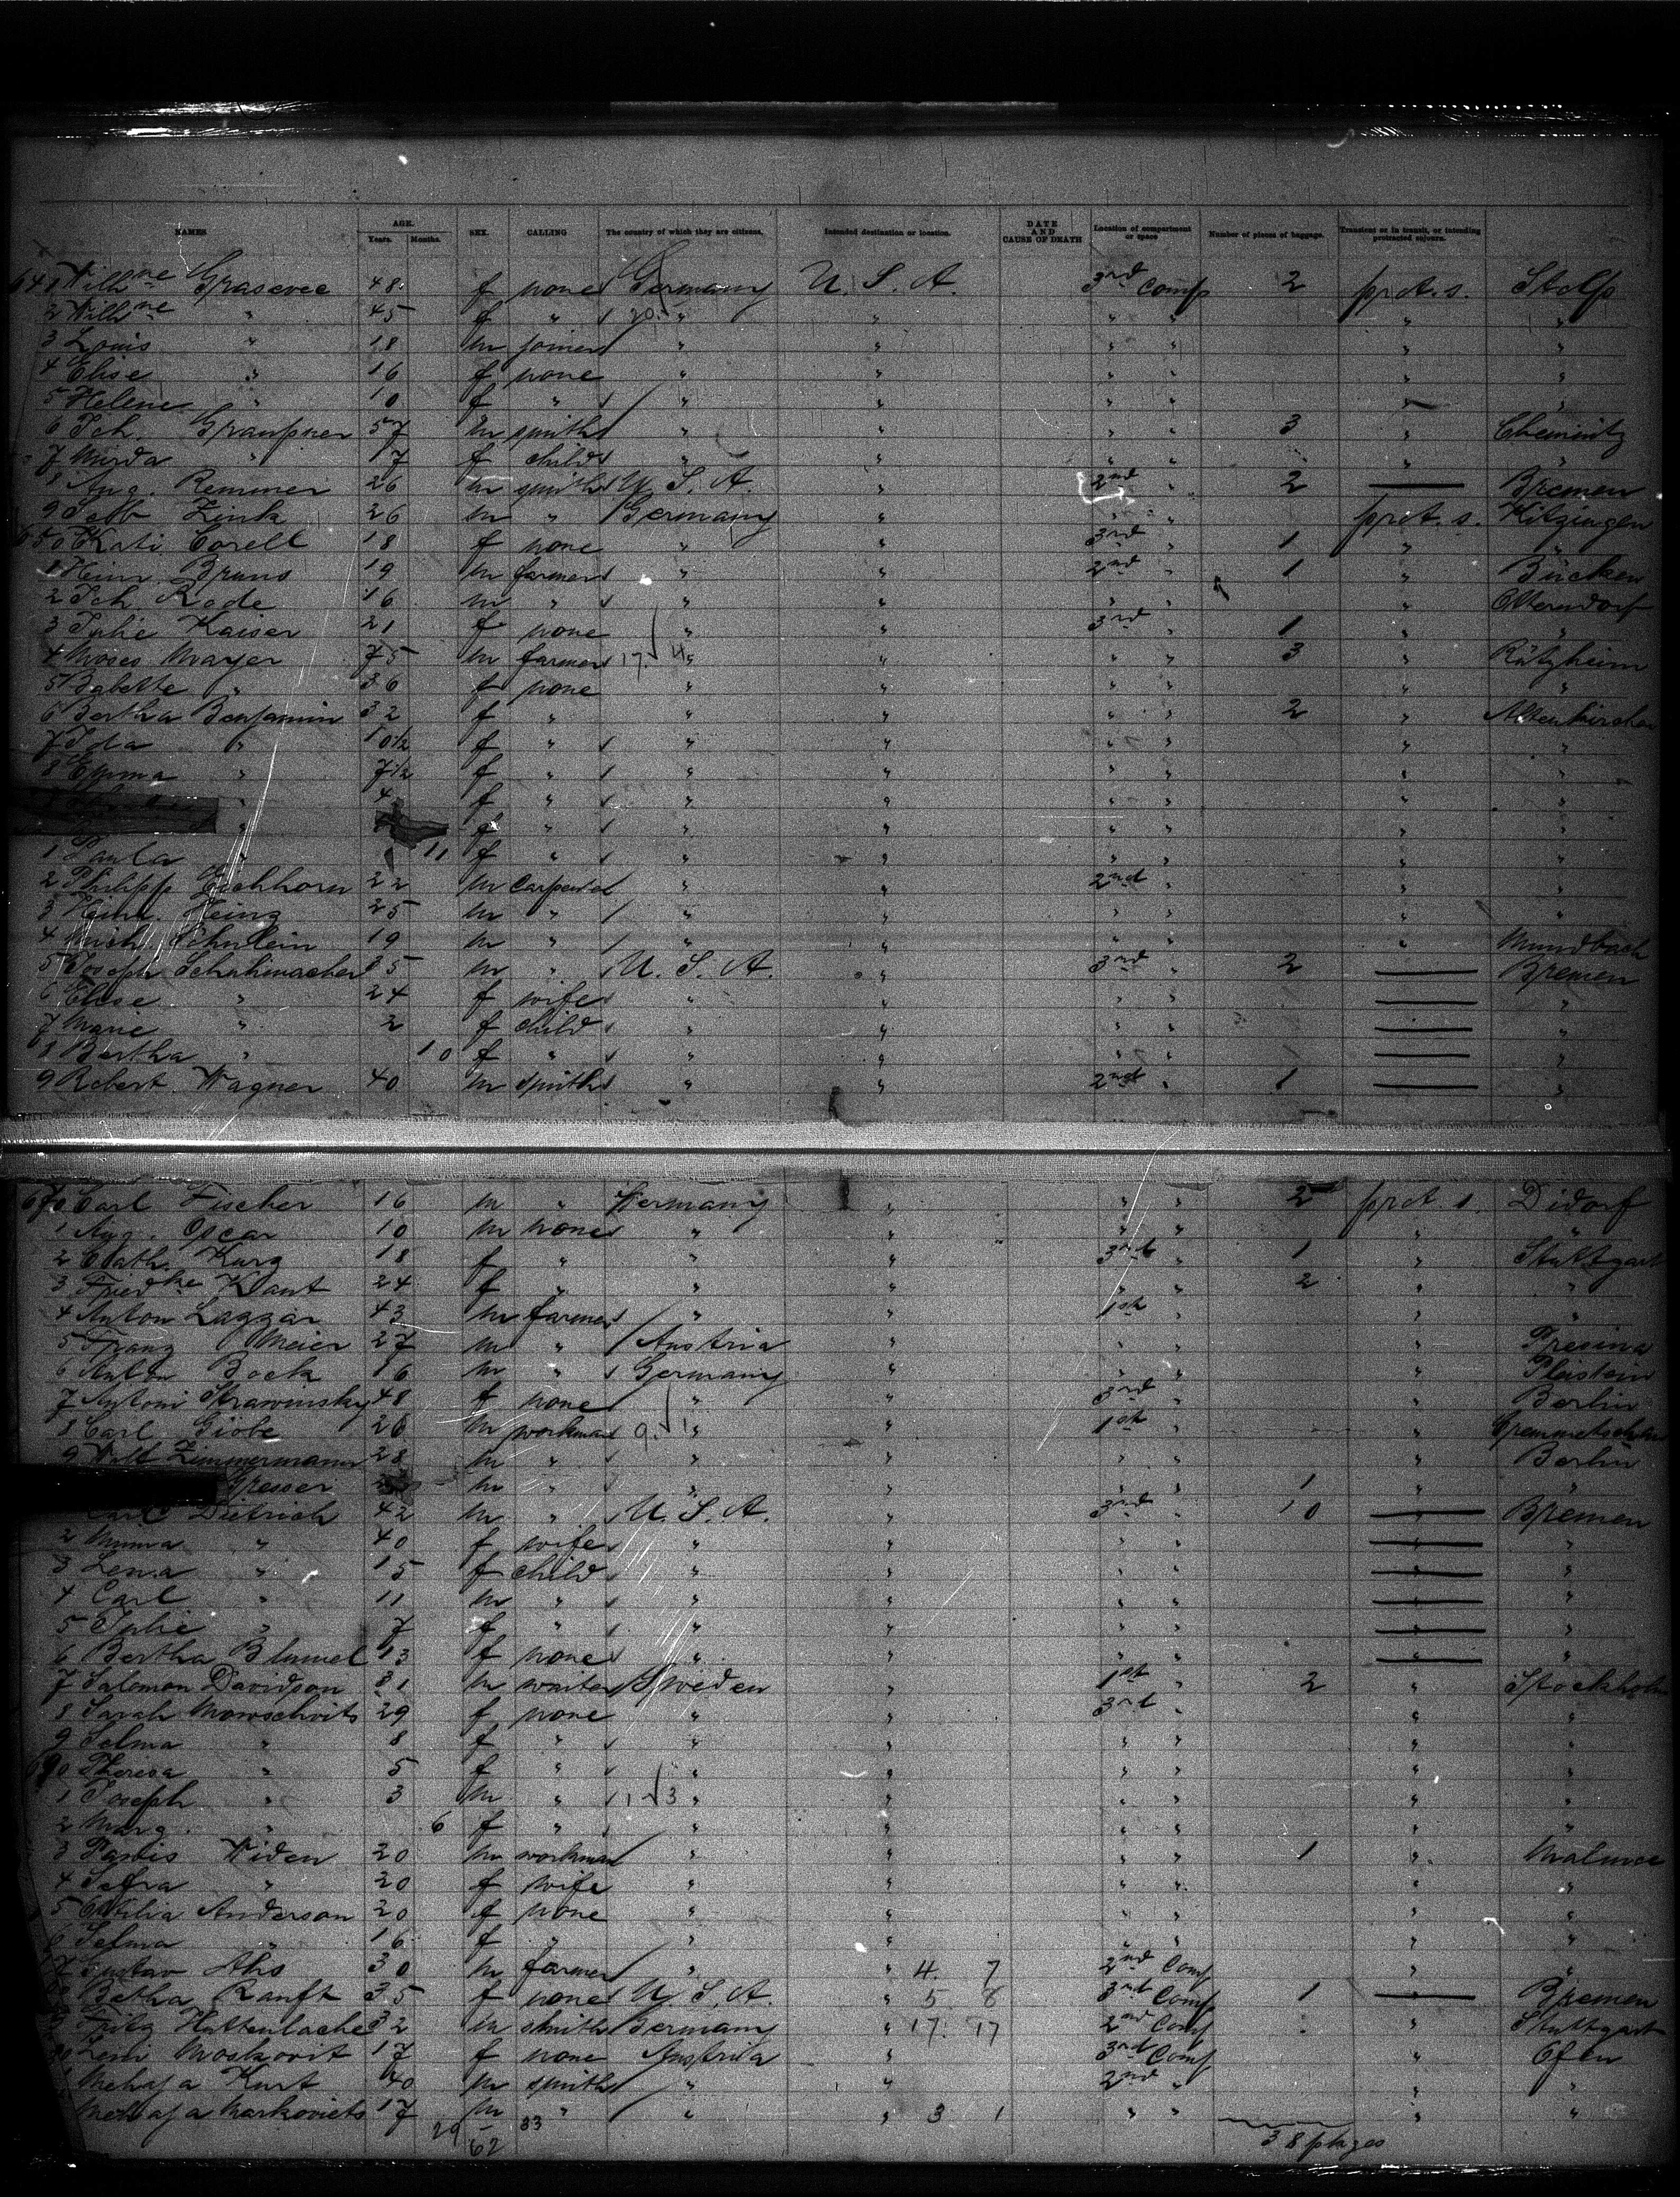 NAMES AGE. Years. Months. SEX. CALLING The country of which they are citizens. Intended destination or location. DATE AND CAUSE OF DEATH Location of compartment or space Number of pieces of baggage. Transient or in transit, or intending protracted sojourn.
641 Wilhne 48 f none Germany U. S. A. 3rd Comp 2 prot. s. Stolp
2 Wilhne " 45 f " 20 " " " " " "
3 Louis " 18 m joiner " " " " " "
4 Elise " 16 f none " " " " " "
5 Helene " 10 f " " " " " " "
6 Joh. Graupner 57 m smith " " " " 3 " Chemnitz
7 " 17 f child " " " " " "
8 Aug. Remmer 26 m smith U. S. A. " 2nd " 2 — Bremen
9 Zink 26 m " Germany " " " prot. s. Kitzingen
650 Kati Corell 18 f none " " 3rd " 1 " "
1 Heinr. Bruns 19 m farmer " " 2nd " 1 " Bücken
2 Joh. Rode 16 m " " " " " " Otterndorf
3 Julie Kaiser 21 f none " " 3rd " 1 " "
4 Moses Mayer 75 m farmer 17 4 " " " " 3 "
5 Babette " 36 f none " " " " " "
6 Bertha Benjamin 32 f " " " " " 2 " Altenkirchen
7 Ida " 10½ f " " " " " " "
8 Emma " 7½ f " " " " " " "
" 4 f " " " " " " "
" f " " " " " " "
1 Paula " 11 f " " " " " " "
2 Philipp Eichhorn 22 m carpenter " " 2nd " " "
3 Heinr. Heinz 25 m " " " " " " "
4 Mich. Schnlein 19 m " " " " " " Mundbach
5 Joseph Schuhmacher 35 m " U. S. A. " 3rd " 2 — Bremen
6 Elise " 24 f wife " " " " — "
7 Marie " 2 f child " " " " — "
8 Bertha " 10 f " " " " " — "
9 Robert Wagner 40 m smith " " 2nd " 1 — "
670 Carl Fischer 16 m " Germany " " " 2 prot. s. Didorf
1 Aug. Oscar 10 m none " " " " " "
2 Cath. Kurz 18 f " " " 3rd " 1 " Stuttgart
3 Friedke Kant 24 f " " " " " 2 " "
4 Anton Laggar 43 m farmer " " 1st " " "
5 Franz Meier 27 m " Austria " " " "
6 Anton Bock 16 m " Germany " " " " Pleistein
7 Antoni Strawinsky 48 f none " " 3rd " " Berlin
8 Carl Giobe 26 m workman 9 1 " " 1st " "
9 Wilh Zimmermann 28 m " " " " " " Berlin
Gresser m " " " " " 1 " "
Carl Dietrich 42 m " U. S. A. " 3rd " 10 — Bremen
2 Minna " 40 f wife " " " " — "
3 Lena " 15 f child " " " " — "
4 Carl " 11 m " " " " " — "
5 Julie " 7 f " " " " " — "
6 Bertha Blumel 13 f none " " " " — "
7 Salomon Davidson 31 m waiter Sweden " 1st " 2 " Stockholm
8 Sarah Mowschvits 29 f none " " 3rd " " "
9 Selma " 8 f " " " " " " "
690 Theresa " 5 f " " " " " " "
1 Joseph " 3 m " 1 3 " " " " " "
2 Marg. " 6 f " " " " " " "
3 Widen 20 m workman " " " " 1 "
4 " 20 f wife " " " " " "
5 Anderson 20 f none " " " " " "
6 Selma " 16 f " " " " " " "
7 Gustav Ahs 30 m farmer " " 4. 7 2nd Comp " "
Betha Ranft 35 f none U. S. A. " 5 8 3rd Comp 1 — Bremen
9 Fritz Huttenlocher 32 m smith Germany " 17. 17 2nd Comp " Stuttgart
Moskovit 17 f none Austria " 3rd Comp " Ofen
Kurt 40 m smith " " 2nd " " "
Markoviets 17 m " " " 3 1 " " " "
29 33
62
38 pkges